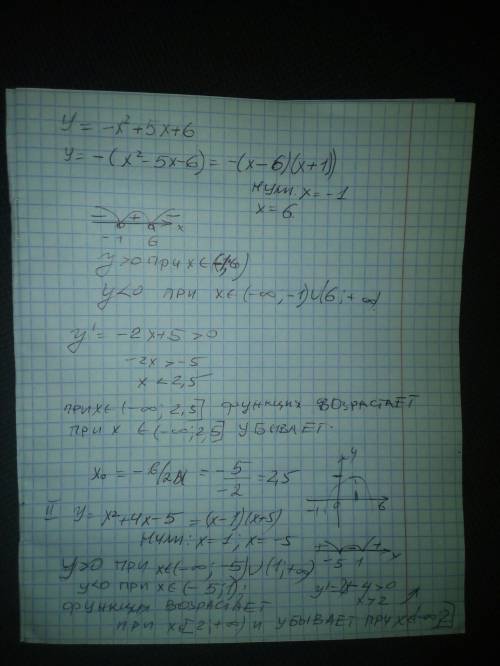 y = -x²+5x+6
y = -(x²-5x-6) = -(x-6)(x+1))
нули: x = -1
x = 6
- + - x
-1 6
y>0 при x∈(-1;6)
y<0 при x∈(-∞;-1)∪(6;+∞)
y' = -2x+5 >0
-2x > -5
x < 2,5
при x∈(-∞; 2,5] функция возрастает
при x ∈(-∞;2,5] убывает.
x₀ = -b/2a = -5/-2 = 2,5
y
-1 0 6
II y = x²+4x-5 = (x-1)(x+5)
Нули: x = 1; x = -5
-5 1 x
y>0 при x∈(-∞; -5)∪(1;+∞)
y<0 при x∈(-5;1)
x>2
функция возрастает
при x[2;+∞) и убывает при x∈(-∞;2]